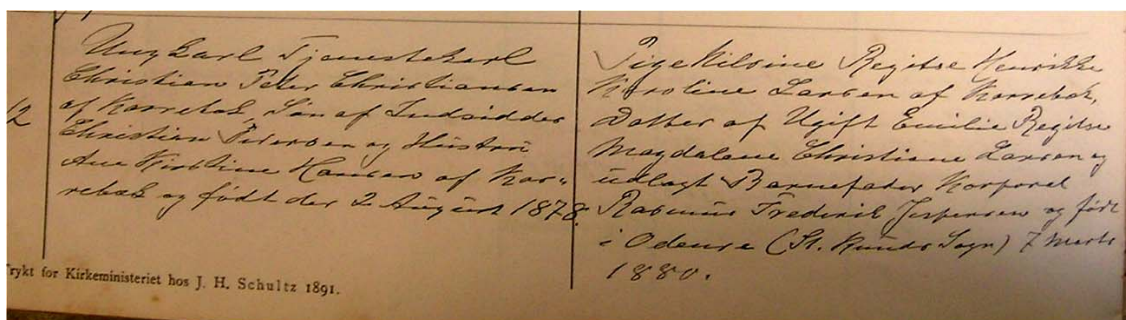 12
Ungkarl Tjenestekarl
Christian Peter Christiansen
af Karrebæk, Søn af Indsidder
Christian Petersen og Hustru
Ane Kirstine Hansen af Kar-
rebæk og født den 2 August 1878.
Pige Nilsine Regitse Henrikke
Karoline Larsen af Karrebæk,
Datter af Ugift Emilie Regitse
Magdalene Christiane Larsen og
udlagt Barnefader Korporal
Rasmus Frederik Jespersen og født
i Odense (St. Knuds Sogn) 7 Marts
1880.
Trykt for Kirkeministeriet hos J. H. Schultz 1891.